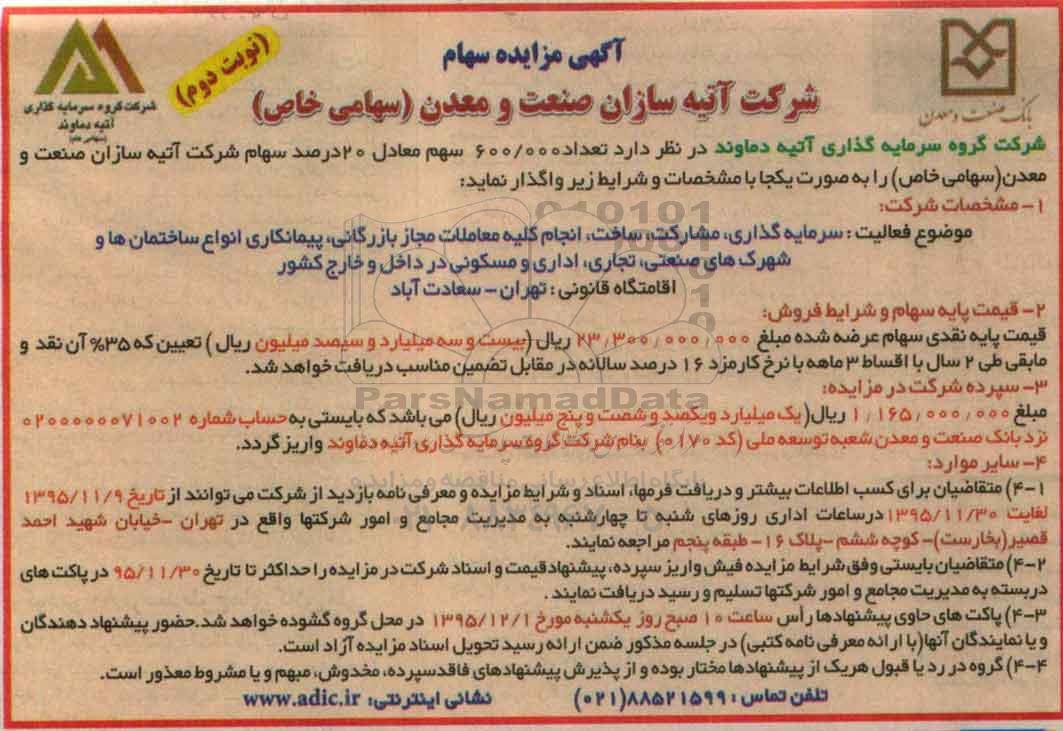 آگهی مزایده سهام
شرکت آتیه سازان صنعت و معدن (سهامی خاص)
(نوبت دوم)
بانک صنعت و معدن
شرکت گروه سرمایه گذاری
آتیه دماوند
(سهامی عام)
شرکت گروه سرمایه گذاری آتیه دماوند در نظر دارد تعداد ۶۰۰/۰۰۰ سهم معادل ۲۰درصد سهام شرکت آتیه سازان صنعت و
معدن(سهامی خاص) را به صورت یکجا با مشخصات و شرایط زیر واگذار نماید:
۱- مشخصات شرکت:
موضوع فعالیت : سرمایه گذاری، مشارکت، ساخت، انجام کلیه معاملات مجاز بازرگانی، پیمانکاری انواع ساختمان ها و
شهرک های صنعتی، تجاری، اداری و مسکونی در داخل و خارج کشور
اقامتگاه قانونی : تهران – سعادت آباد
۲- قیمت پایه سهام و شرایط فروش:
قیمت پایه نقدی سهام عرضه شده مبلغ ۲۳٫۳۰۰٫۰۰۰٫۰۰۰ ریال (بیست و سه میلیارد و سیصد میلیون ریال ) تعیین که ۳۵% آن نقد و
مابقی طی ۲ سال با اقساط ۳ ماهه با نرخ کارمزد ۱۶ درصد سالانه در مقابل تضمین مناسب دریافت خواهد شد.
۳- سپرده شرکت در مزایده:
مبلغ ۱٫۱۶۵٫۰۰۰٫۰۰۰ ریال( یک میلیارد ویکصد و شصت و پنج میلیون ریال) می باشد که بایستی به حساب شماره ۰۲۰۰۰۰۰۰۷۱۰۰۲
نزد بانک صنعت و معدن شعبه توسعه ملی (کد ۰۱۷۰) بنام شرکت گروه سرمایه گذاری آتیه دماوند واریز گردد.
۴- سایر موارد:
۴-۱) متقاضیان برای کسب اطلاعات بیشتر و دریافت فرمها، اسناد و شرایط مزایده و معرفی نامه بازدید از شرکت می توانند از تاریخ ۱۳۹۵/۱۱/۹
لغایت ۱۳۹۵/۱۱/۳۰ درساعات اداری روزهای شنبه تا چهارشنبه به مدیریت مجامع و امور شرکتها واقع در تهران –خیابان شهید احمد
قصیر(بخارست)– کوچه ششم –پلاک ۱۶– طبقه پنجم مراجعه نمایند.
۴-۲) متقاضیان بایستی وفق شرایط مزایده فیش واریز سپرده، پیشنهاد قیمت و اسناد شرکت در مزایده را حداکثر تا تاریخ ۹۵/۱۱/۳۰ در پاکت های
دربسته به مدیریت مجامع و امور شرکتها تسلیم و رسید دریافت نمایند .
۴-۳) پاکت های حاوی پیشنهادها رأس ساعت ۱۰ صبح روز یکشنبه مورخ ۱۳۹۵/۱۲/۱ در محل گروه گشوده خواهد شد.حضور پیشنهاد دهندگان
و یا نمایندگان آنها(با ارائه معرفی نامه کتبی) در جلسه مذکور ضمن ارائه رسید تحویل اسناد مزایده آزاد است.
۴-۴) گروه در رد یا قبول هریک از پیشنهادها مختار بوده و از پذیرش پیشنهادهای فاقد سپرده، مخدوش، مبهم و یا مشروط معذور است.
تلفن تماس : ۸۸۵۲۱۵۹۹(۰۲۱)
نشانی اینترنتی: www.adic.ir
ParsNamadData
پایگاه اطلاع رسانی مناقصه و مزایده